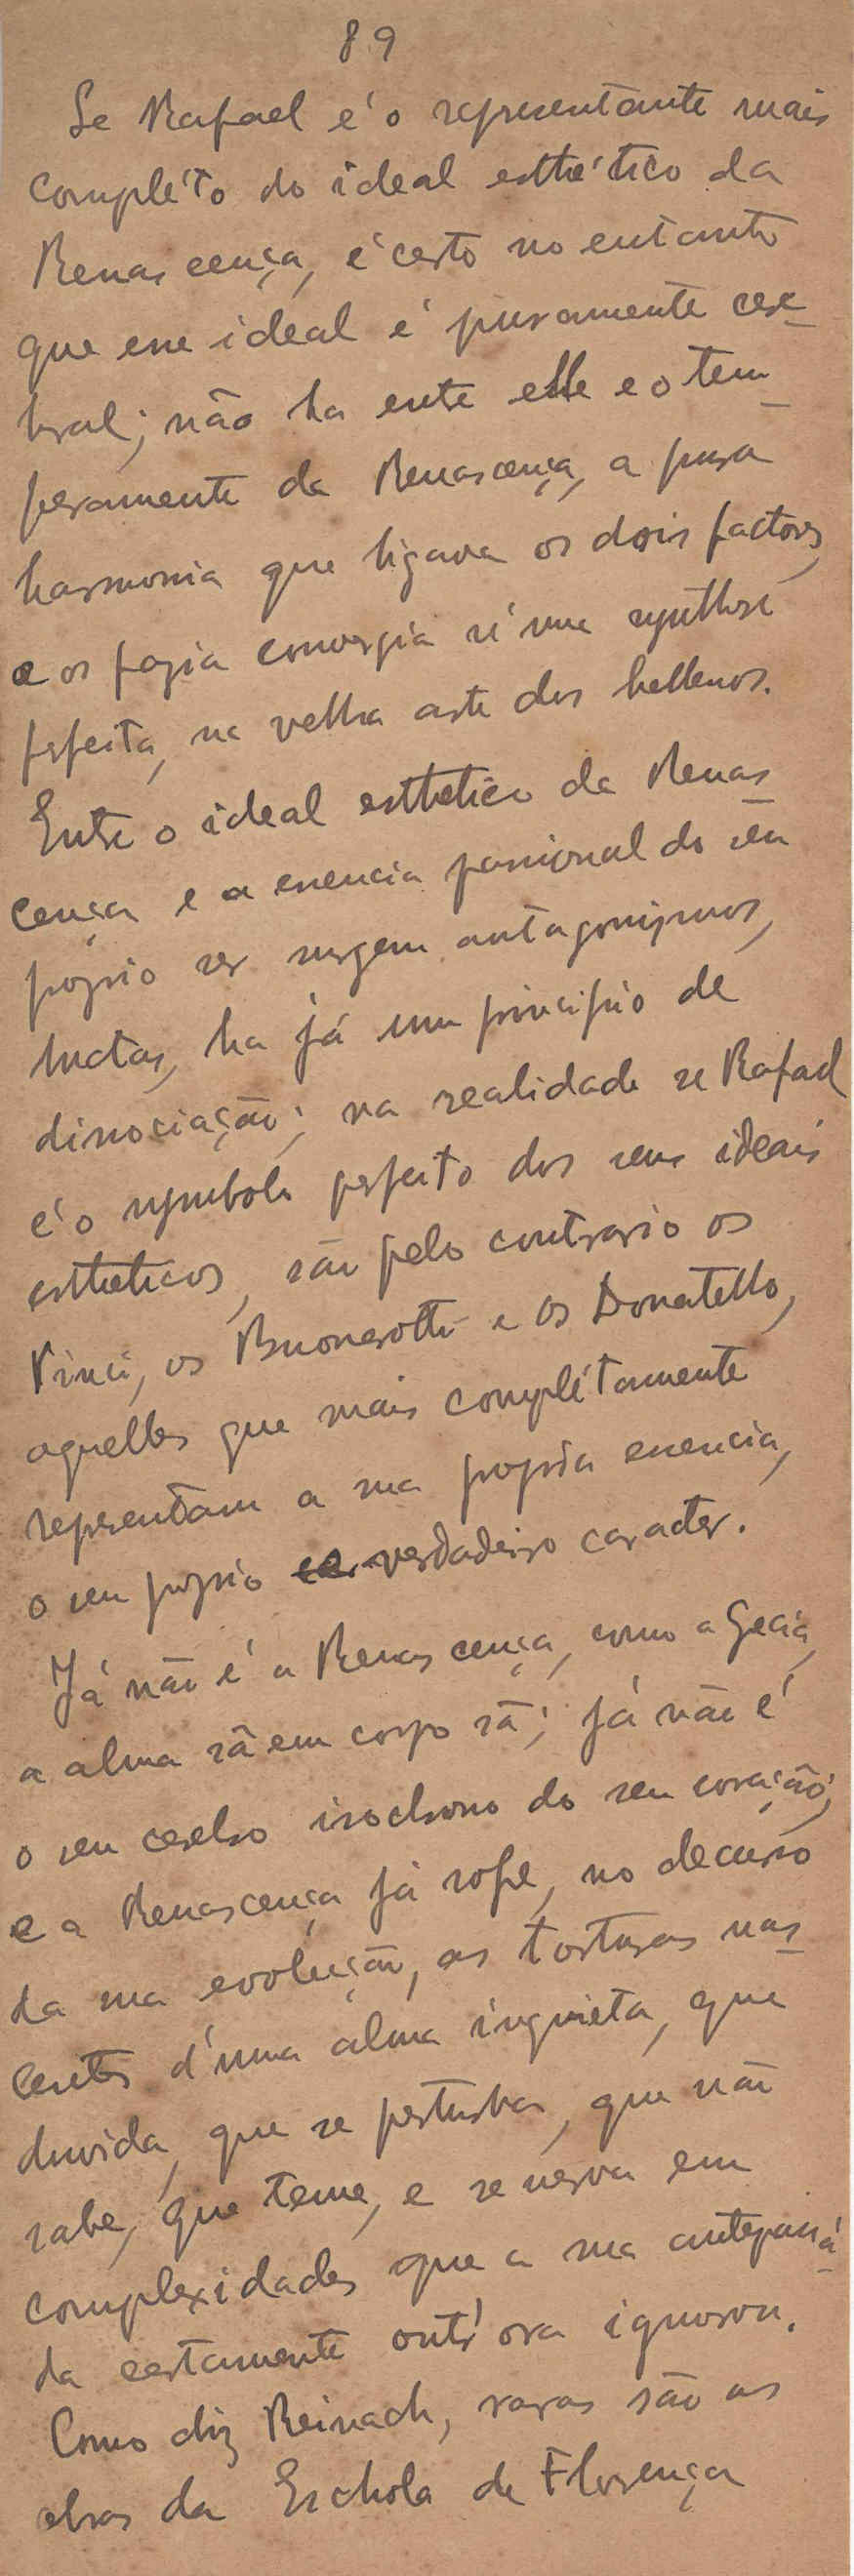 89
Se Rafael é o representante mais
compléto do ideal esthético da
Renascença, é certo no entanto
que esse ideal é puramente cere-
bral; não ha entre elle e o tem-
peramento da Renascença, a pura
harmonia que ligava os dois factores,
e os fazia convergir n'uma synthese
perfeita, na velha arte dos hellenos.
Entre o ideal esthetico da Renas-
cença e a essencia passional do seu
proprio ser surgem antagonismos,
luctas, ha já um principio de
dissociação; na realidade se Rafael
é o symbolo perfeito dos seus ideais
estheticos, são pelo contrario os
Vinci, os Buonarotti e os Donatello,
aquelles que mais complétamente
representam a sua propria essencia,
o seu proprio verdadeiro caracter.
Já não é a Renascença, como a Grecia,
a alma sã em corpo sã; já não é
o seu cerebro isochrono do seu coração;
e a Renascença já sofre, no decurso
da sua evolução, as torturas nas-
centes d'uma alma inquieta, que
duvida, que se perturba, que não
sabe, que teme, e se nerva em
complexidades que a sua antepassá-
da certamente outr'ora ignorou.
Como diz Reinach, raras são as
obras da Eschola de Florença